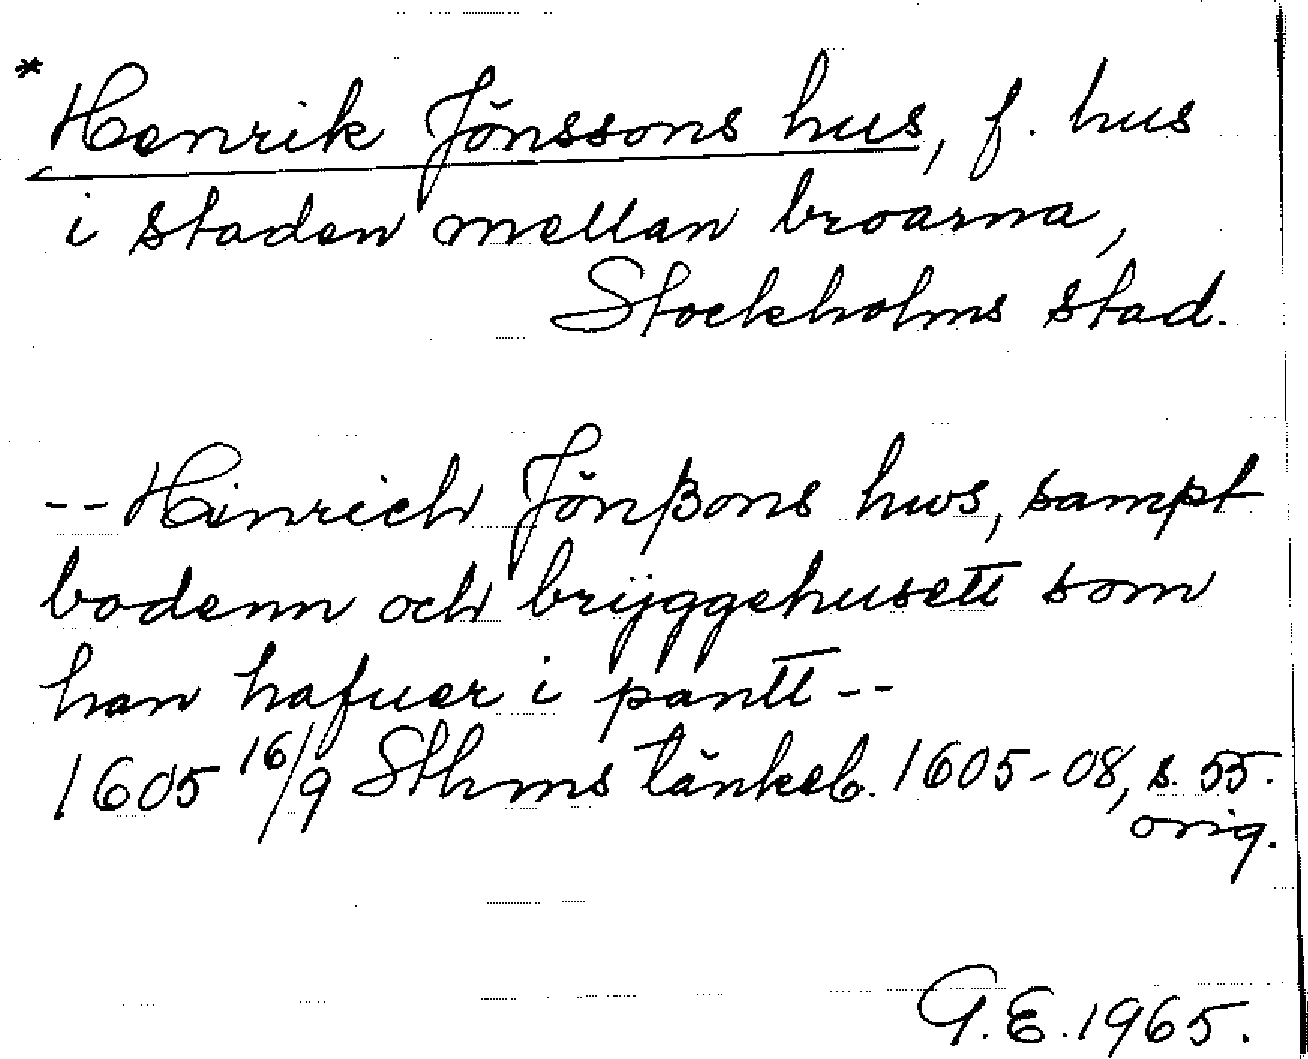 * Henrik Jönssons hus, f. hus
i staden mellan broarna,
Stockholms stad.
-- Hinrich Jönßons hws, sampt
bodenn och bryggehusett som
han hafuer i pantt --
1605 16/9 Sthms tänkeb. 1605-08, s. 55.
orig.
G.E. 1965.